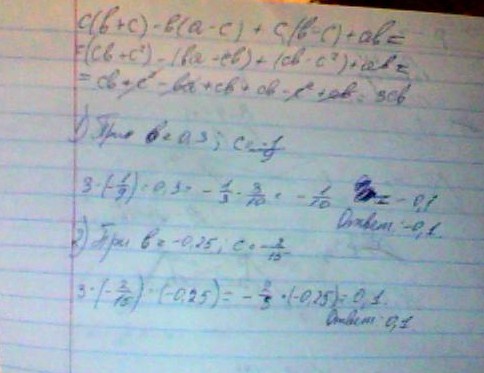 c(b+c) - b(a-c) + c(b-c) + ab =
= (cb + c²) - (ba - cb) + (cb - c²) + ab =
= cb + c² - ba + cb + cb - c² + ab = 3cb
1) При b = 0,3; c = -1/9
3·(-1/9)·0,3 = -1/3 · 3/10 = -1/10 = -0,1
Ответ: -0,1
2) При b = -0,25; c = -2/15
3·(-2/15)·(-0,25) = -2/5·(-0,25) = 0,1
Ответ: 0,1